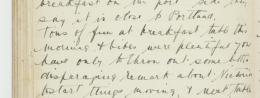 breakfast on the port side
say it is close to Portland.
tons of fun at breakfast, take this
morning & bibes were plentiful you
have only to throw out some
disparaging remark about Victoria
to start things moving, & next table